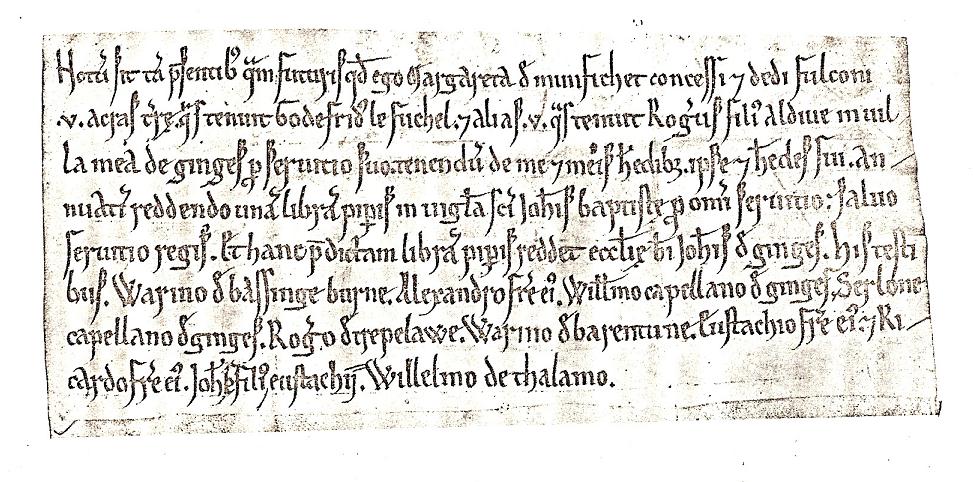 Notū sit tā p̄sentib⁊ q̄m futuris qđ ego Margareta đ munfichet concessi ⁊ dedi fulconi
.v. acras t̄rę. q̄s tenuit Godefrid⁊ le fuchel. ⁊ alias .v. q̄s tenuit Rog̃us fili⁊ aldiue in uil
la mea de ginges ꝑ seruitio suo. tenendū de me ⁊ meis h̄edibꝫ. ipse ⁊ h̄edes sui. an
nuatī reddendo unā librā pipis in uigl̄a sc̄i Joh̄is baptistę ꝑ omī seruitio: saluo
seruitio regis. Et hanc p̄dictam librā pipis reddet eccl̄ię bī Joh̄is đ ginges. his testi
bus. Warino đ bassinge burne. Alexandro fr̄e ei⁊. Will̄mo capellano đ ginges. Serlone
capellano đ ginges. Rog̃o đ trepelawe. Warino đ barentune. Eustachio fr̄e ei⁊. ⁊ Ri
cardo fr̄e ei⁊. Joh̄e fili⁊ eustachii. Willelmo de thalamo.